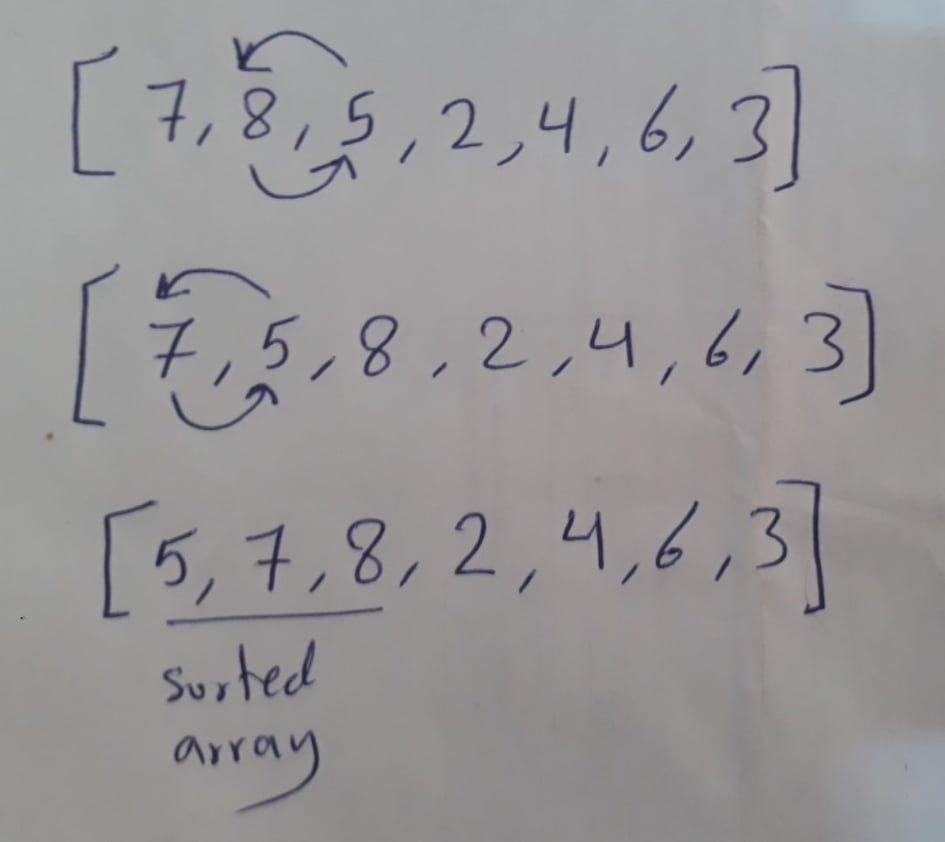 [7, 8, 5, 2, 4, 6, 3]
[7, 5, 8, 2, 4, 6, 3]
[5, 7, 8, 2, 4, 6, 3]
sorted
array